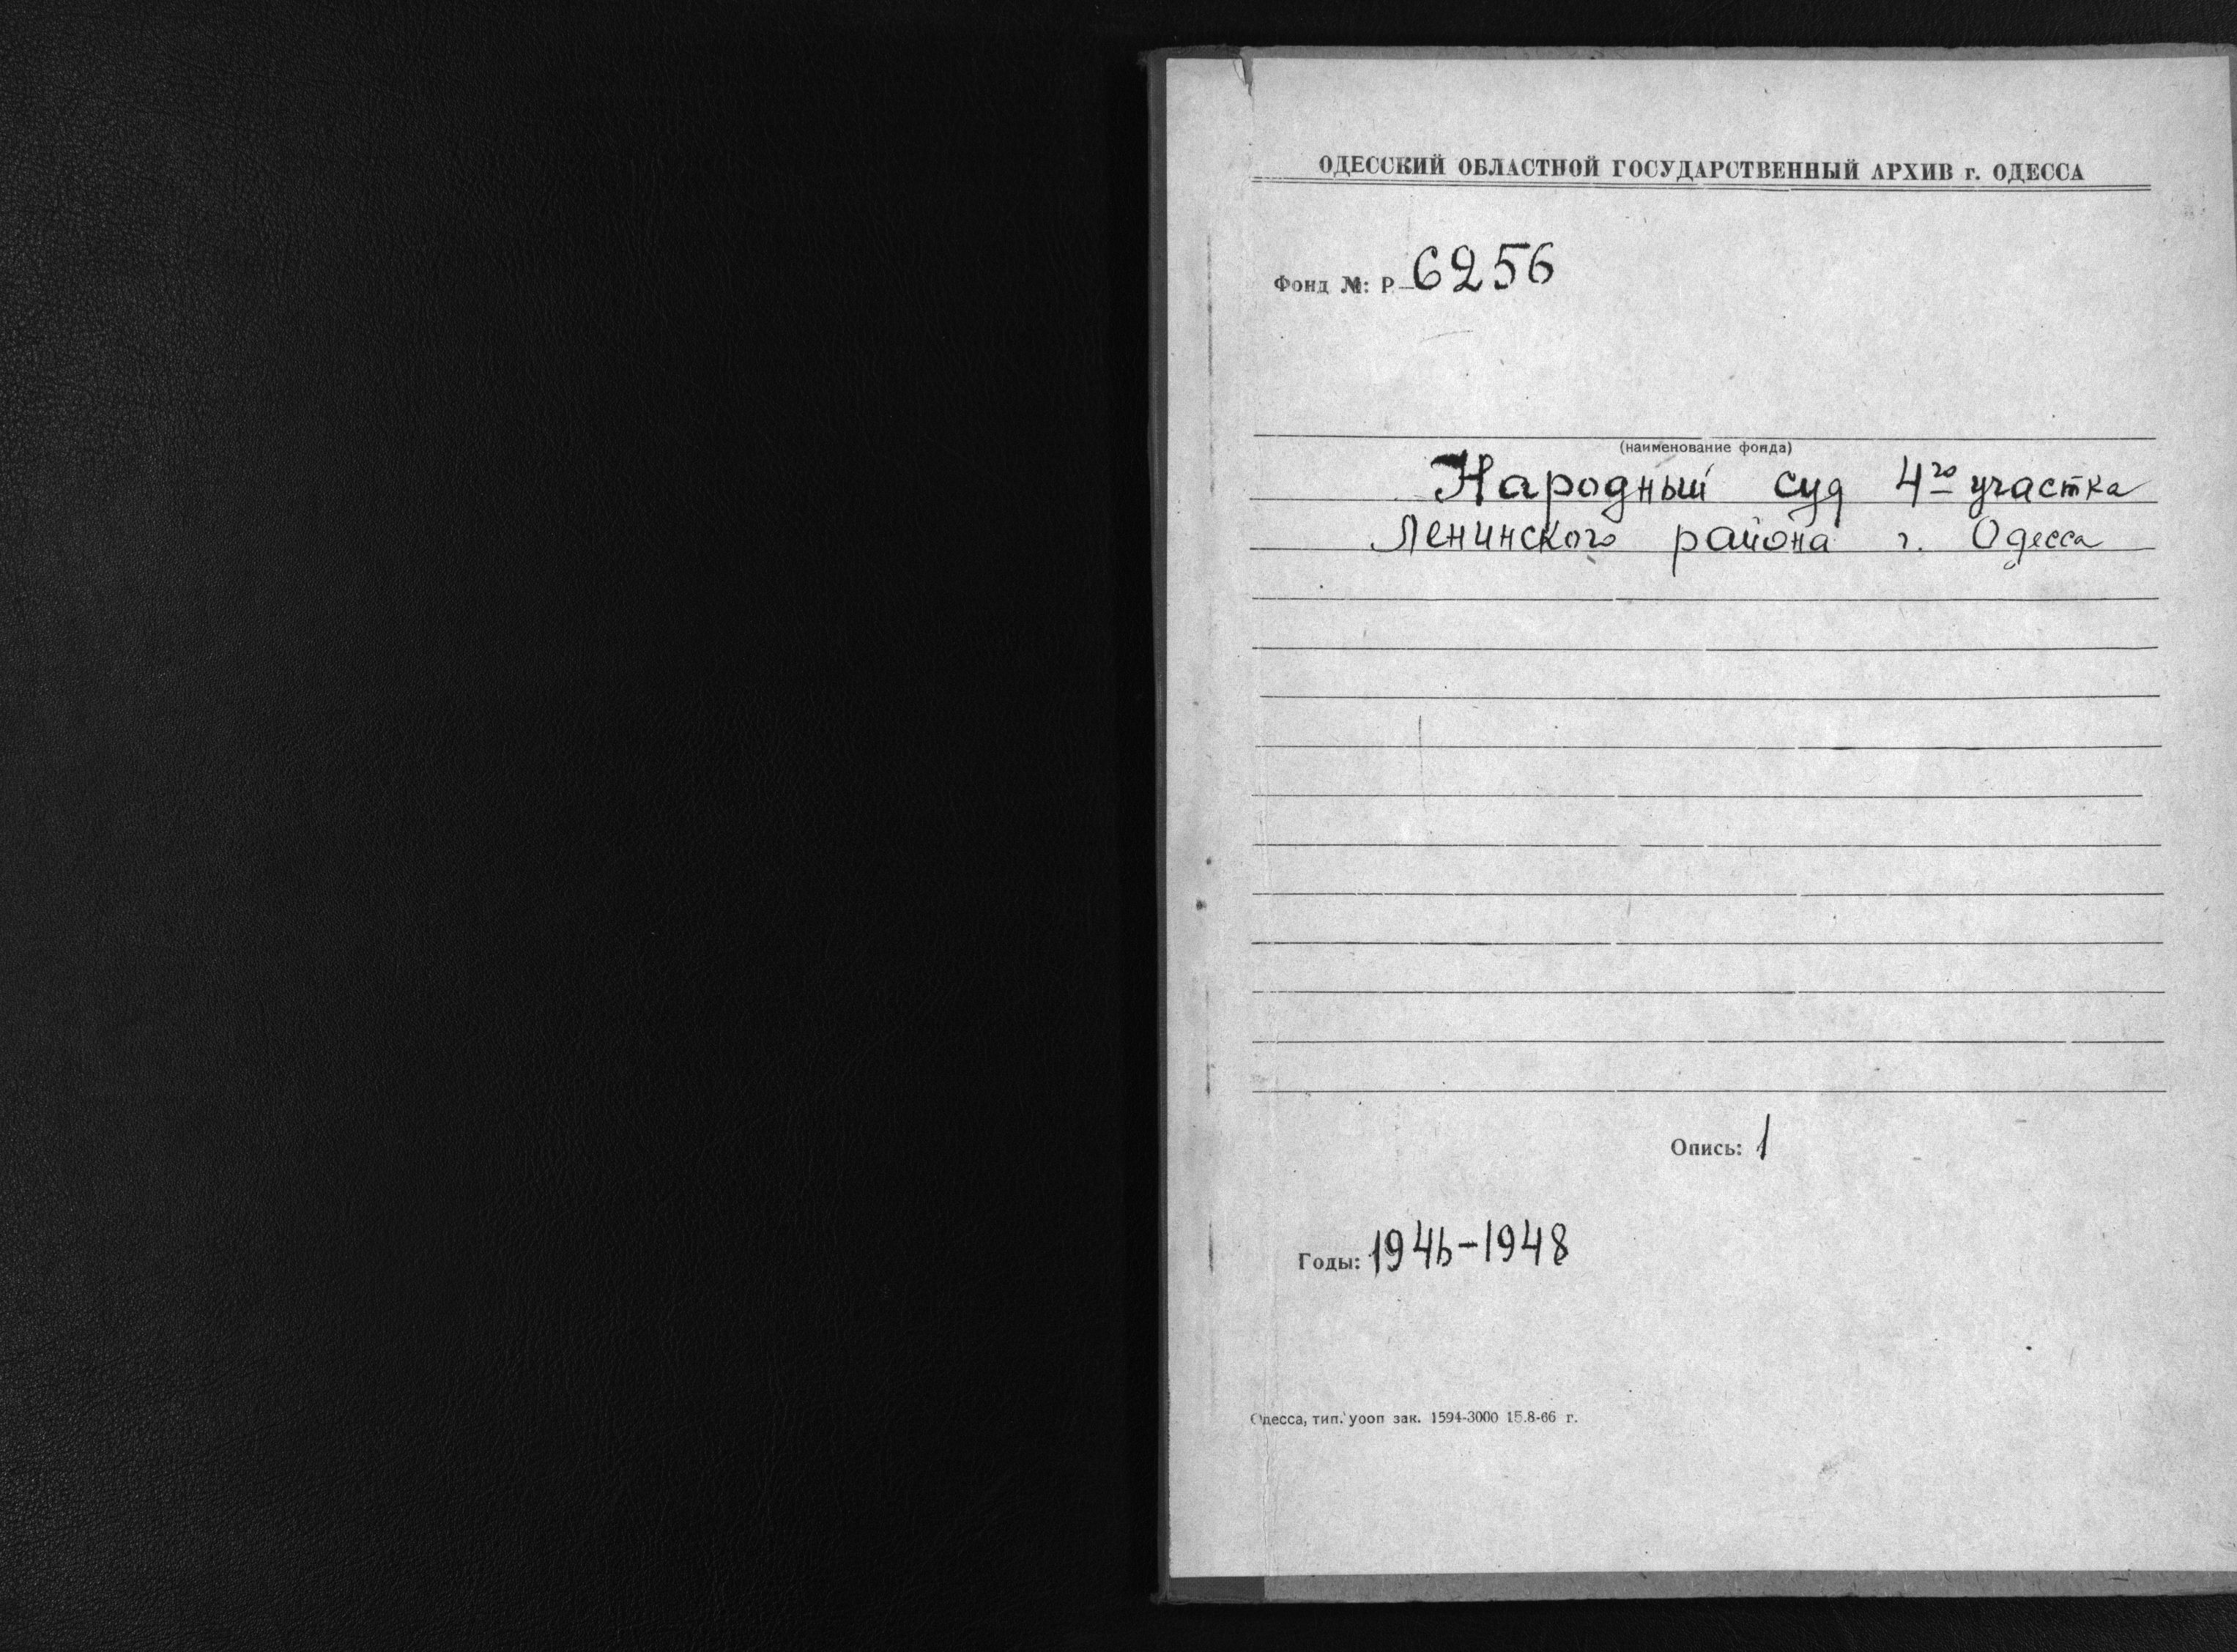 ОДЕССКИЙ ОБЛАСТНОЙ ГОСУДАРСТВЕННЫЙ АРХИВ г. ОДЕССА
Фонд №: Р-6256
(наименование фонда)
Народный суд 4го участка
Ленинского района г. Одесса
Опись: 1
Годы: 1946-1948
Одесса, тип. уооп зак. 1594-3000 15.8-66 г.